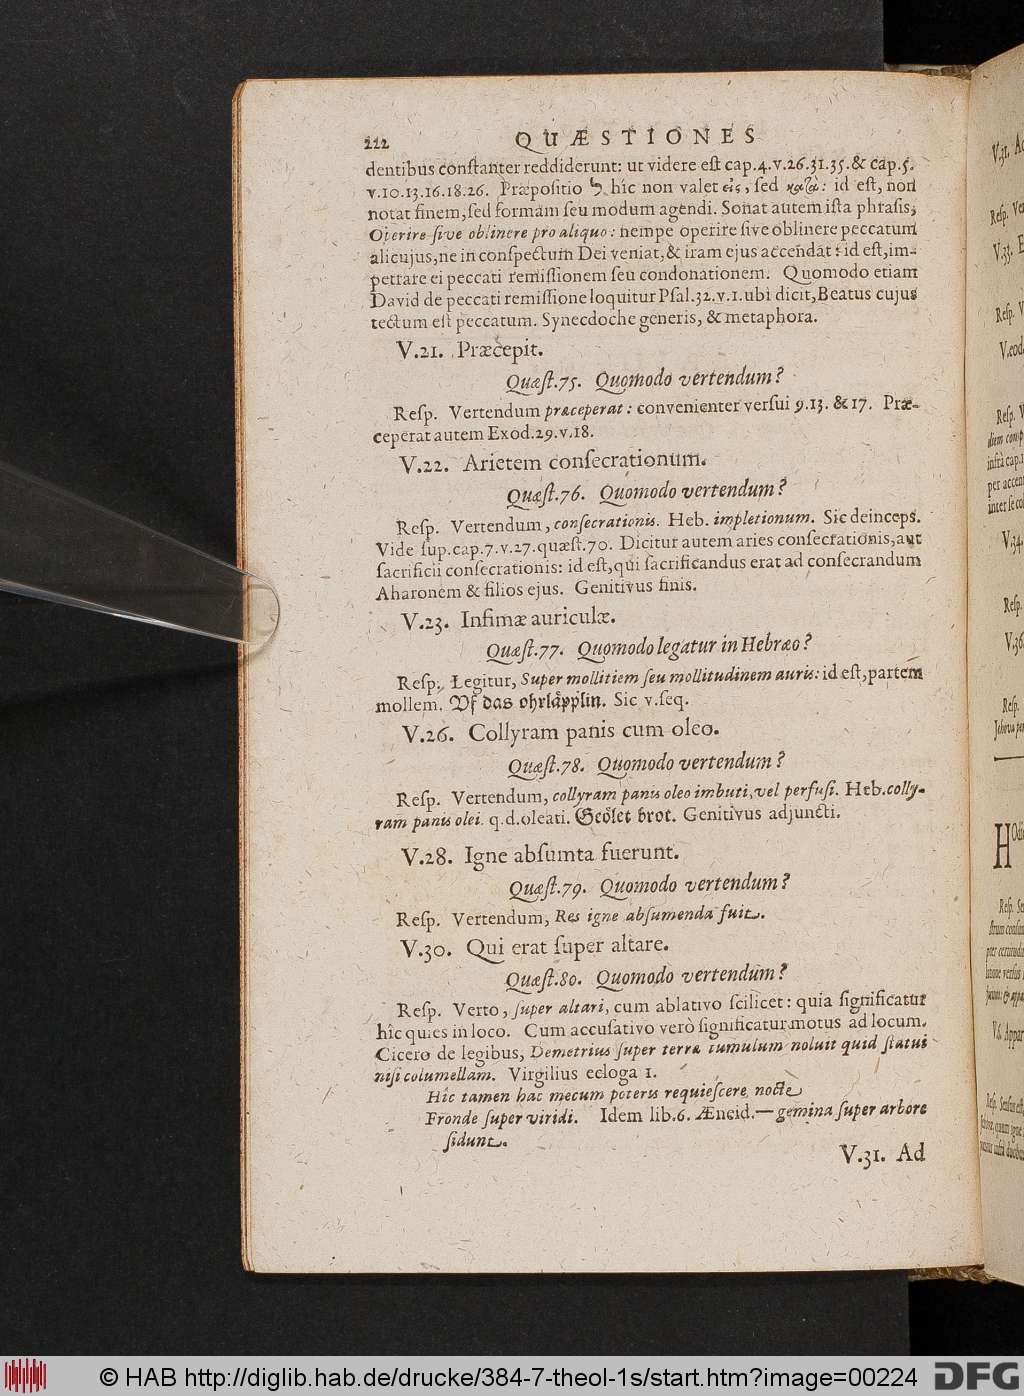 212 QUÆSTIONES
dentibus conſtanter reddiderunt: ut videre eſt cap.4.v.26.31.35.& cap.5.
v.10.13.16.18.26. Præpoſitio ל hîc non valet εἰς, ſed κατὰ: id eſt, non
notat finem,ſed formam ſeu modum agendi. Sonat autem iſta phraſis,
Operire ſive oblinere pro aliquo: nempe operire ſive oblinere peccatum
alicujus,ne in conſpectum Dei veniat,& iram ejus accendat: id eſt,im-
petrare ei peccati remiſſionem ſeu condonationem. Quomodo etiam
David de peccati remiſſione loquitur Pſal.32.v.1.ubi dicit,Beatus cujus
tectum eſt peccatum. Synecdoche generis, & metaphora.
V.21. Præcepit.
Quæſt.75. Quomodo vertendum?
Reſp. Vertendum præceperat: convenienter verſui 9.13. & 17. Præ-
ceperat autem Exod.29.v.18.
V.22. Arietem conſecrationum.
Quæſt.76. Quomodo vertendum?
Reſp. Vertendum, conſecrationis. Heb. impletionum. Sic deinceps.
Vide ſup.cap.7.v.27.quæſt.70. Dicitur autem aries conſecrationis,aut
ſacrificii conſecrationis: id eſt,qui ſacrificandus erat ad conſecrandum
Aharonem & filios ejus. Genitivus finis.
V.23. Infimæ auriculæ.
Quæſt.77. Quomodo legatur in Hebræo?
Reſp. Legitur, Super mollitiem ſeu mollitudinem auris: id eſt,partem
mollem. Vf das ohrläpplin. Sic v.ſeq.
V.26. Collyram panis cum oleo.
Quæſt.78. Quomodo vertendum?
Reſp. Vertendum, collyram panis oleo imbuti, vel perfuſi. Heb.colly-
ram panis olei. q.d.oleati. Geölet brot. Genitivus adjuncti.
V.28. Igne abſumta fuerunt.
Quæſt.79. Quomodo vertendum?
Reſp. Vertendum, Res igne abſumenda fuit.
V.30. Qui erat ſuper altare.
Quæſt.80. Quomodo vertendum?
Reſp. Verto, ſuper altari, cum ablativo ſcilicet: quia ſignificatur
hîc quies in loco. Cum accuſativo verò ſignificatur motus ad locum.
Cicero de legibus, Demetrius ſuper terræ tumulum noluit quid ſtatui
niſi columellam. Virgilius ecloga 1.
Hîc tamen hac mecum poteris requieſcere nocte
Fronde ſuper viridi. Idem lib.6. Æneid.— gemina ſuper arbore
ſidunt.
V.31. Ad
© HAB http://diglib.hab.de/drucke/384-7-theol-1s/start.htm?image=00224
DFG